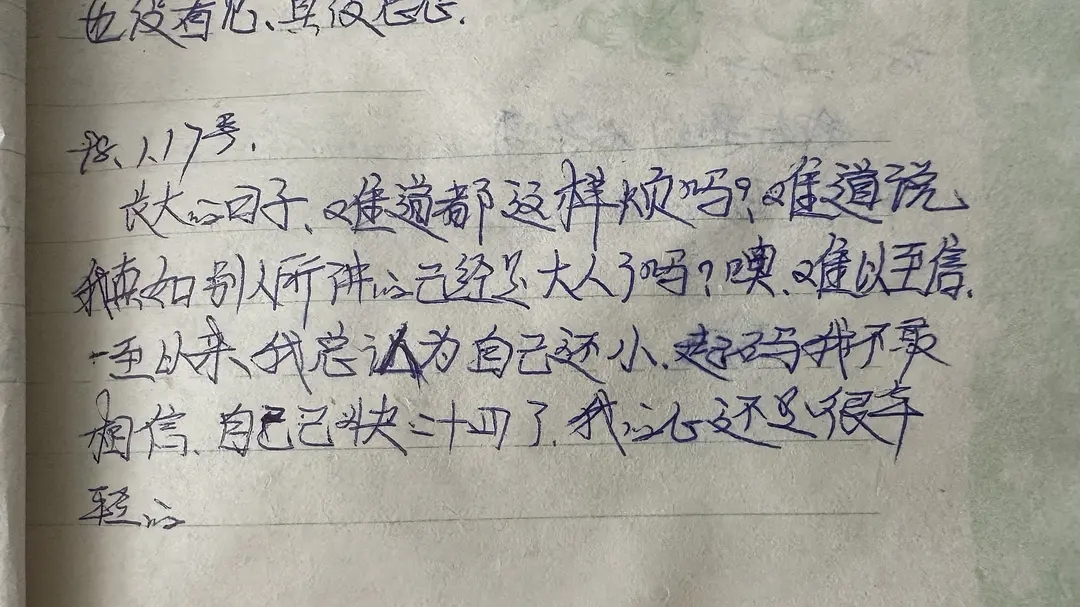 也没有儿、真没意思.
98、1、17号.
长大的日子、难道都这样烦吗?难道说
我真如别人所讲的已经是大人了吗?噢、难以至信、
一至以来、我总认为自己还小、起码我不敢
相信、自己已半快二十四了、我的心还是很年
轻的